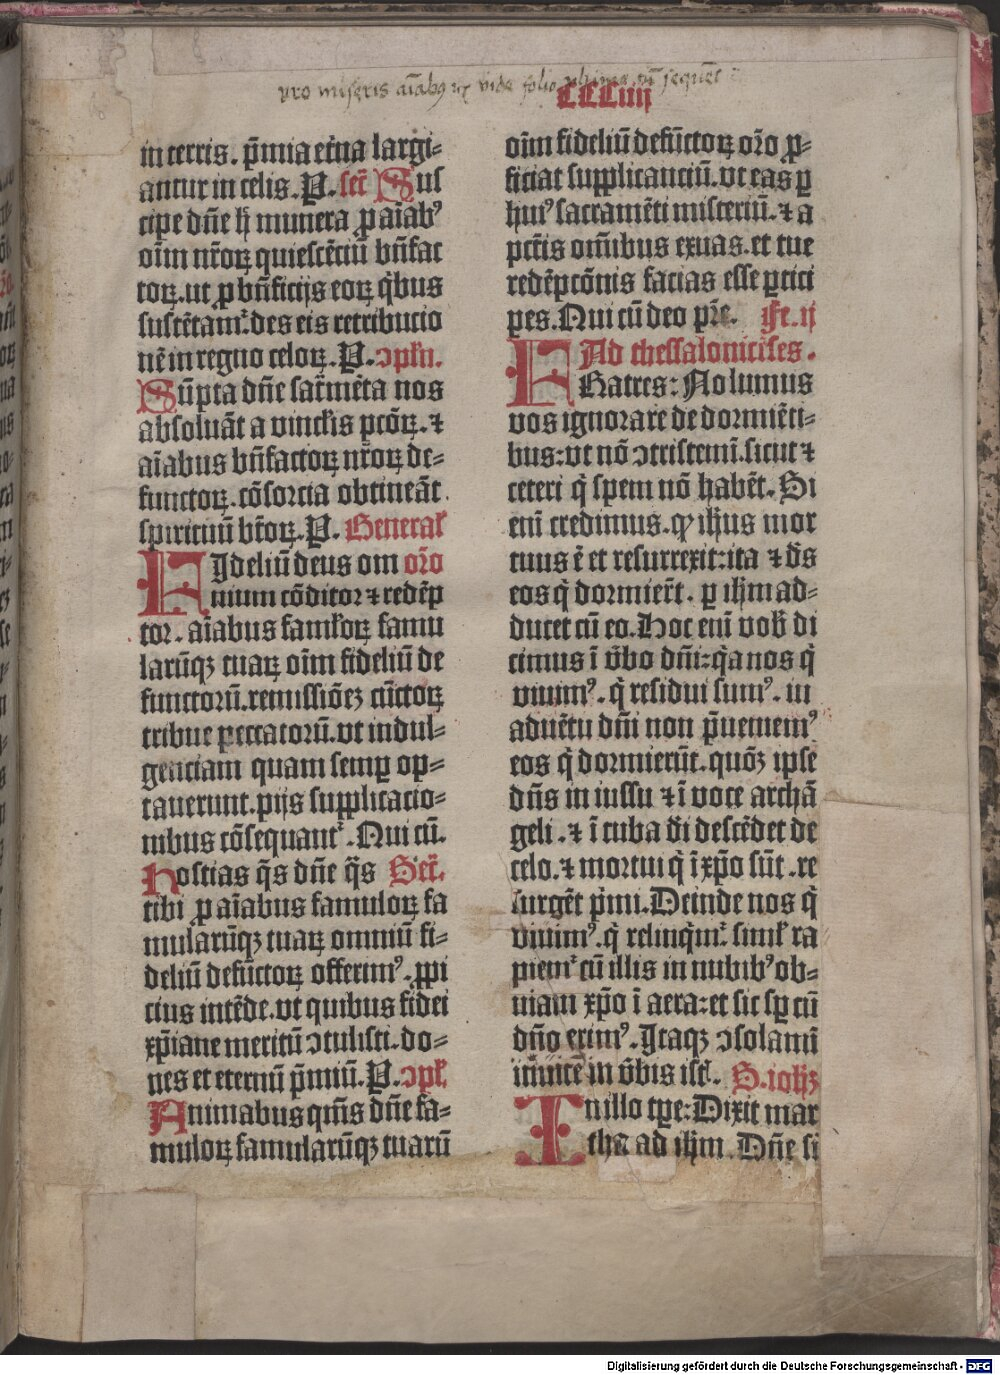 pro miseris aīabꝰ vide folio sequēt
CCCiiij
in terris. p̄mia et̄na largi⸗
antur in celis. P. sec̄ Sus
cipe dn̄e h̄ munera ꝓ aīabꝰ
oīm nr̄oꝝ quiescētiū bn̄fac
toꝝ. ut ꝓ bn̄ficijs eoꝝ q̇bus
sustētamᷣ. des eis retributio
nē in regno celoꝝ. P. ꝯpłn.
Sūpta dn̄e sac̄mēta nos
absoluāt a vinclis pctōꝝ. ⁊
aīabus bn̄factoꝝ nr̄oꝝ de⸗
functoꝝ. cōsorcia obtineāt
spirituū bt̄oꝝ. P. General
FIdeliū deus om or̄o
nium cōditor ⁊ redēp
tor. aīabus famłoꝝ famu
larūqꝫ tuaꝝ oīm fideliū de
functorū. remissiōeꝫ cūctoꝝ
tribue peccatorū. vt indul⸗
gentiam quam semꝑ op⸗
tauerunt. pijs supplicatio⸗
nibus cōsequantᷣ. Qui cū.
Hostias q̄s dn̄e q̄s Secr̄.
tibi ꝓ aīabus famuloꝝ fa
mularūqꝫ tuaꝝ omniū fi⸗
deliū defūctoꝝ offerimꝰ. ꝓpi
cius intēde. vt quibus fidei
xp̄iane meritū ꝯtulisti. do⸗
nes et eternū p̄miū. P. ꝯpł.
Animabus qm̄s dn̄e fa⸗
muloꝝ famularūqꝫ tuarū
oīm fideliū defūctoꝝ or̄o ꝓ⸗
ficiat supplicanciū. vt eas ꝑ
huiꝰ sacramēti misteriū. ⁊ a
pctīs om̄ibus exuas. et tue
redēpcōnis facias esse ꝑtici
pes. Qui cū deo pr̄e. Fe. ij
Ad thessalonicēses.
FRatres: Nolumus
vos ignorare de dormiēti⸗
bus: vt nō ꝯtristemī. sicut ⁊
ceteri q̇ spem nō habēt. Si
enī credimus. ꝙ ih̄us mor
tuus ē et resurrexit: ita ⁊ ds̄
eos q̇ dormier̄t. ꝑ ih̄m ad⸗
ducet cū eo. Hoc enī vob̄ di
cimus ī v̄bo dn̄i: q̇a nos q̇
viuimꝰ. q̇ residui sumꝰ. in
aduētu dn̄i non p̄ueniemꝰ
eos q̇ dormierūt. quōꝫ ipse
dn̄s in iussu ⁊ ī voce archā
geli. ⁊ ī tuba di descēdet de
celo. ⁊ mortui q̇ ī xp̄o sūt. re
surgēt ṗmi. Deinde nos q̇
viuimꝰ. q̇ relinq̇mᷣ. simł ra
piemᷣ cū illis in nubibꝰ ob⸗
uiam xp̄o ī aera: et sic sꝑ cū
dn̄o erimꝰ. Itaqꝫ ꝯsolamī
inuicē in v̄bis ist̄. S. ioh̄ꝫ
In illo tꝑe: Dixit mar
tha ad ih̄m. Dn̄e si
Digitalisierung gefördert durch die Deutsche Forschungsgemeinschaft - DFG